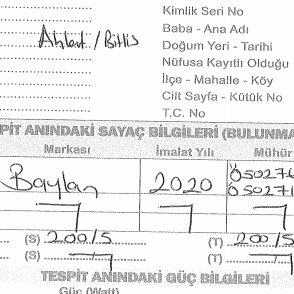 Kimlik Seri No
Baba - Ana Adı
Ahlat / Bitlis Doğum Yeri - Tarihi
Nüfusa Kayıtlı Olduğu
İlçe - Mahalle - Köy
Cilt Sayfa - Kütük No
T.C. No
PİT ANINDAKİ SAYAÇ BİLGİLERİ (BULUNMA
Markası İmalat Yılı Mühür
Baylan 2020 050276
050271
(S) 200/5 (T) 200/5
(S) (T)
TESPİT ANINDAKİ GÜÇ BİLGİLERİ
Güç (Watt)